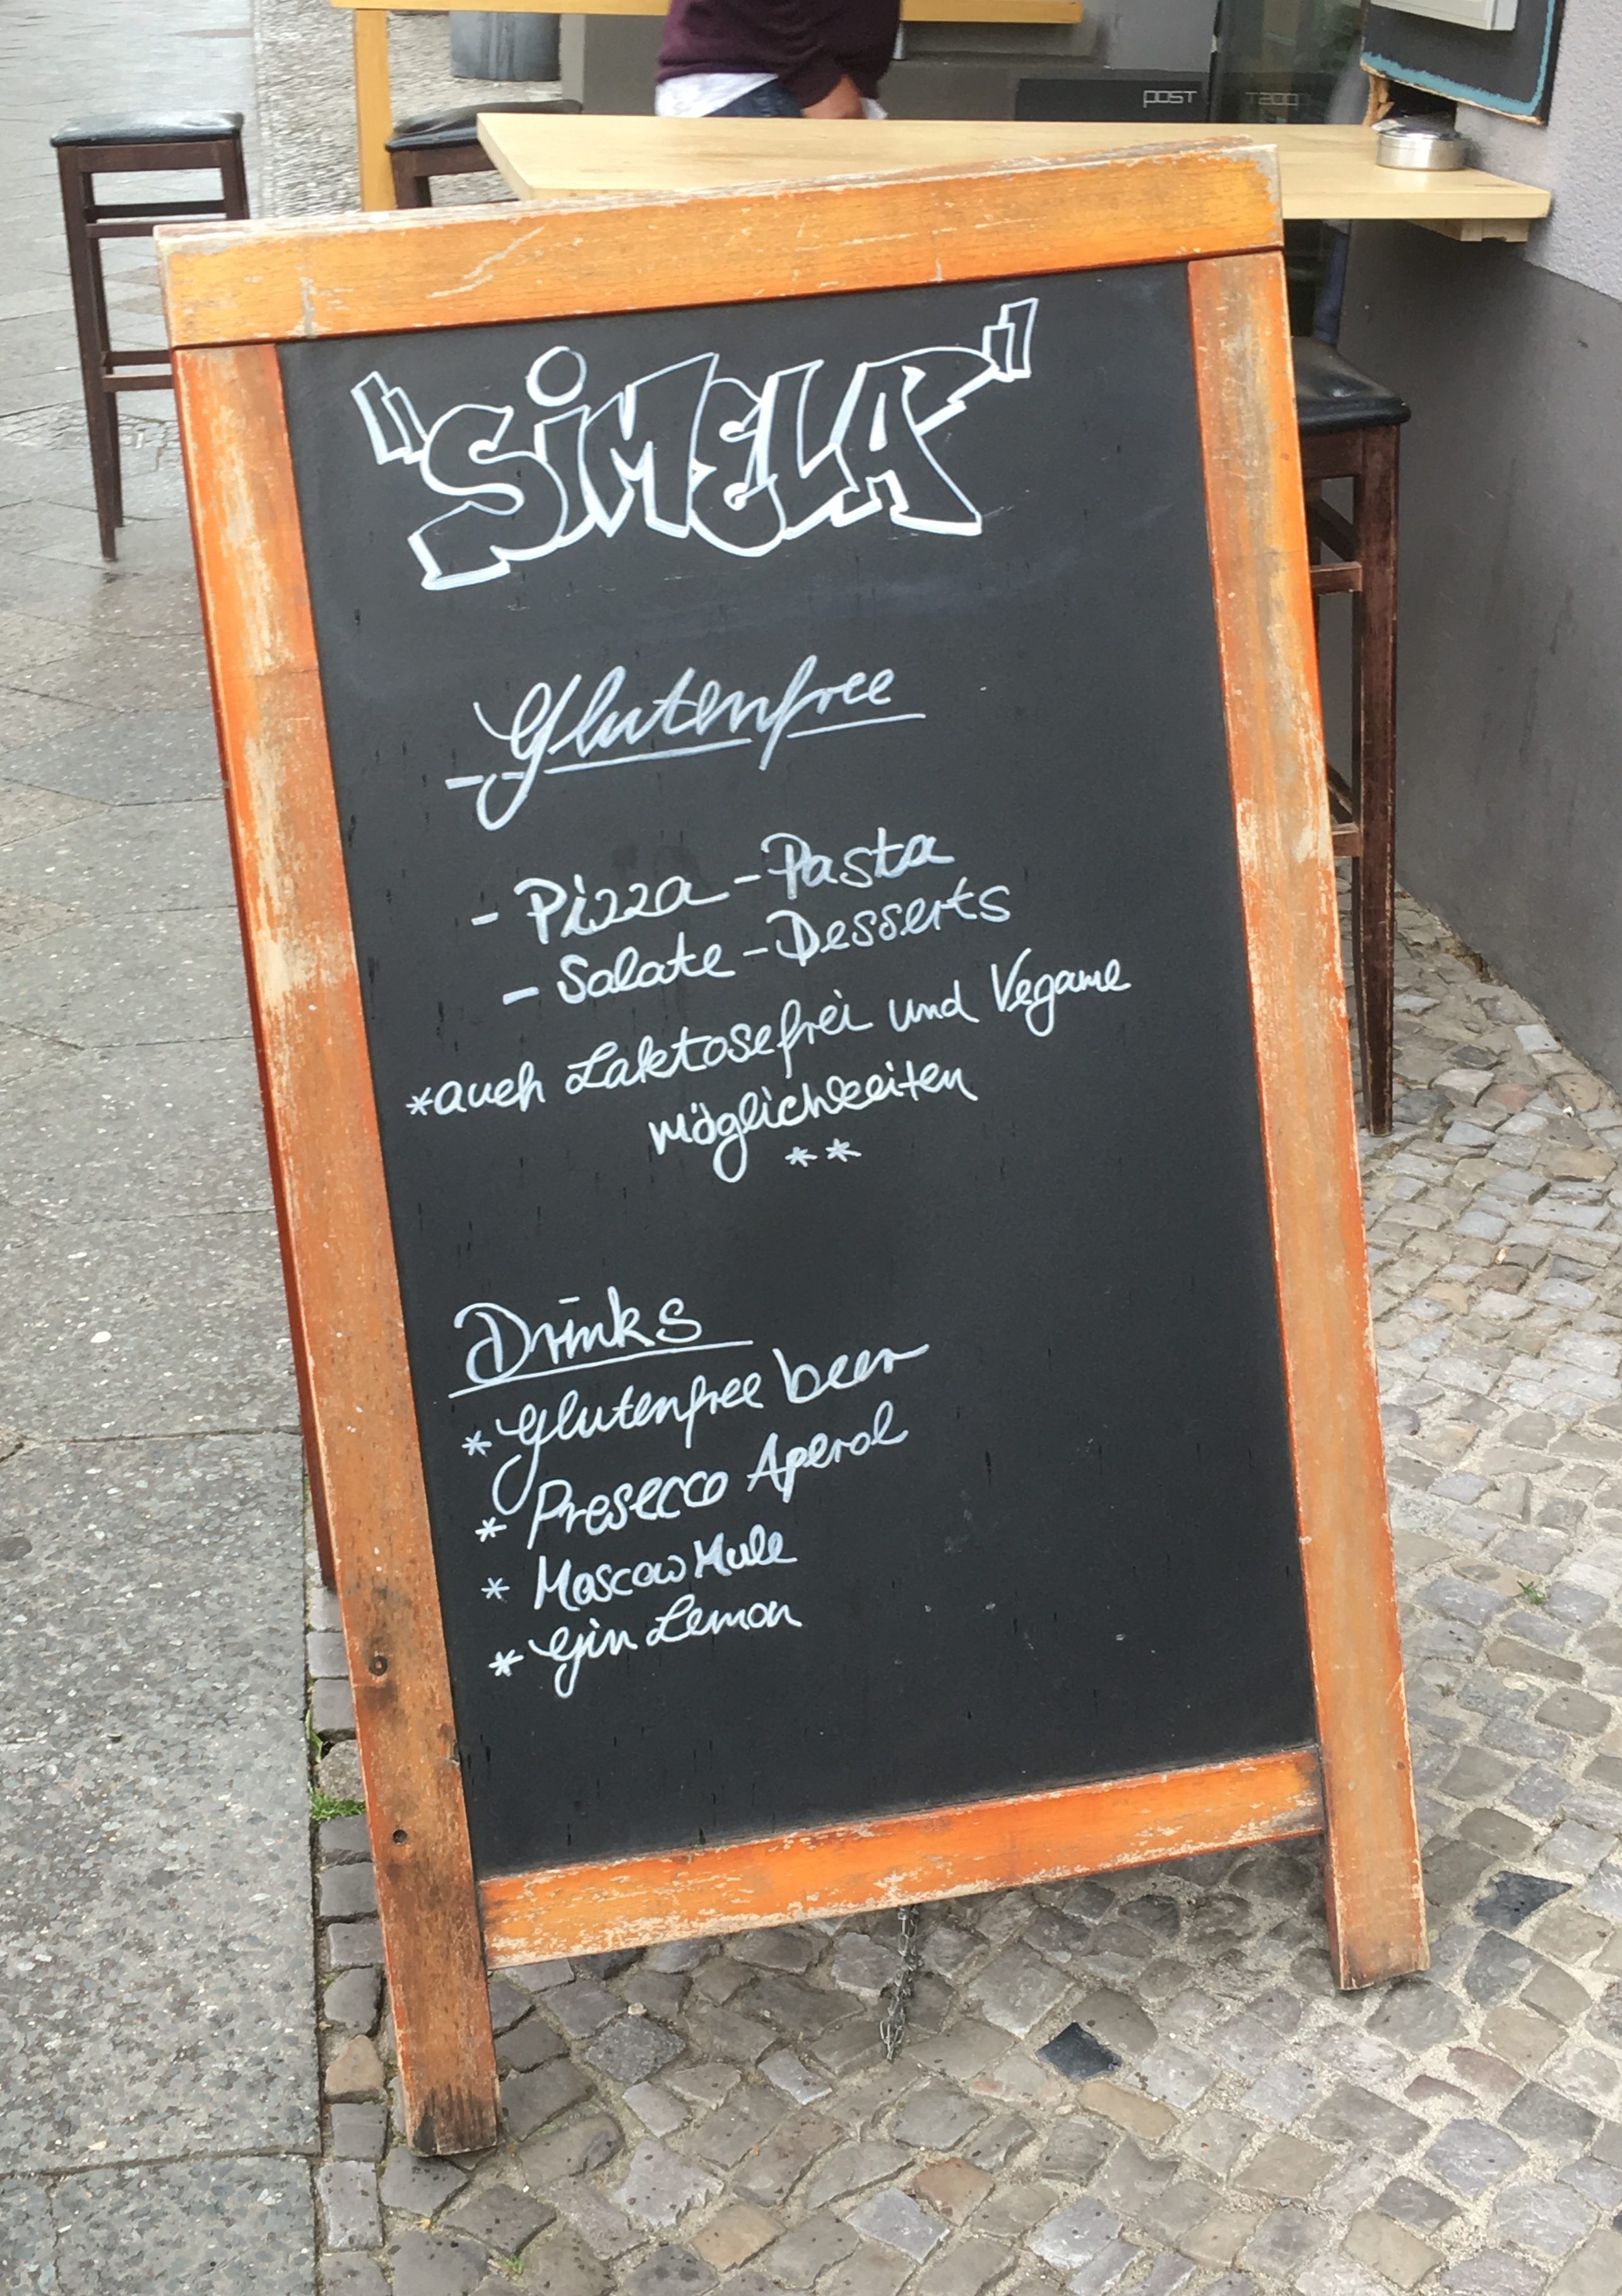 post
"SiMELA"
- Glutenfree
- Pizza - Pasta
- Salate - Desserts
*auch Laktosefrei und Vegane
möglichkeiten
* *
Drinks
* Glutenfree beer
* Prosecco Aperol
* Moscow Mule
* Gin Lemon